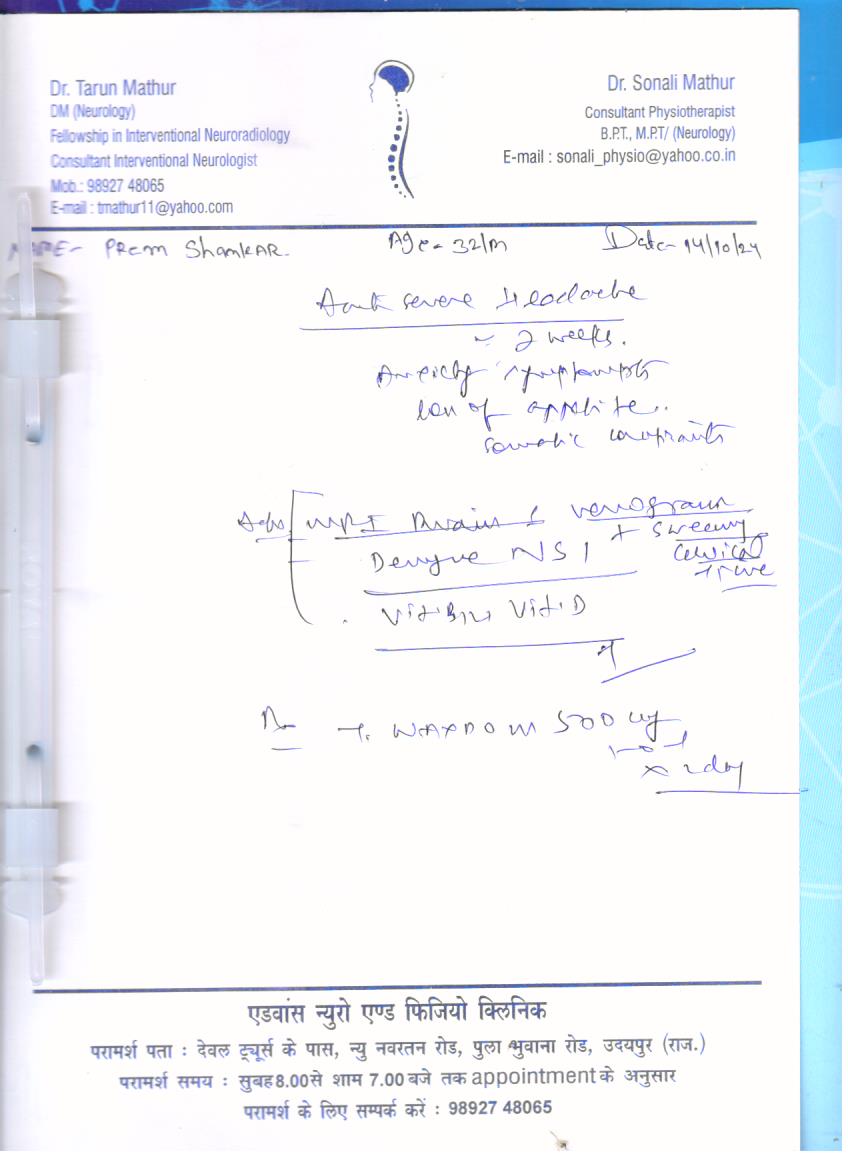 Dr. Tarun Mathur
DM (Neurology)
Fellowship in Interventional Neuroradiology
Consultant Interventional Neurologist
Mob.: 98927 48065
E-mail : tmathur11@yahoo.com
Dr. Sonali Mathur
Consultant Physiotherapist
B.P.T., M.P.T/ (Neurology)
E-mail : sonali_physio@yahoo.co.in
NAME- PREM ShamkAR.
Age- 32/M
Date- 14/10/24
severe Headache
2 weeks.
Anxiety symptoms
loss of appetite..
somatic complaints
Adv MRI Brain venogram
+ screening
Dengue NS1
Cervical
spine
Vit B12 Vit D
T. NAXDOM 500 mg
1-0-1
x 2day
एडवांस न्युरो एण्ड फिजियो क्लिनिक
परामर्श पता : देवल ट्यूर्स के पास, न्यु नवरतन रोड, पुला भुवाना रोड, उदयपुर (राज.)
परामर्श समय : सुबह 8.00 से शाम 7.00 बजे तक appointment के अनुसार
परामर्श के लिए सम्पर्क करें : 98927 48065